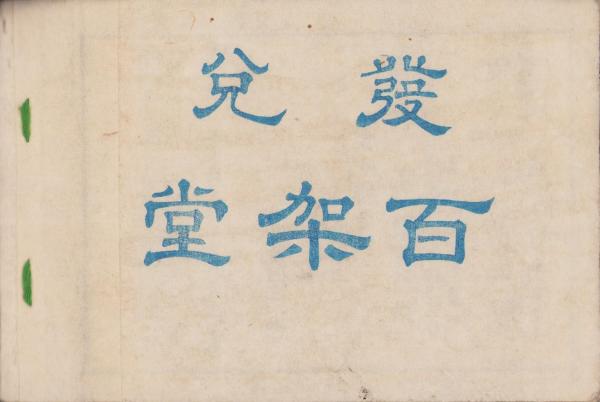 發兌
百架堂